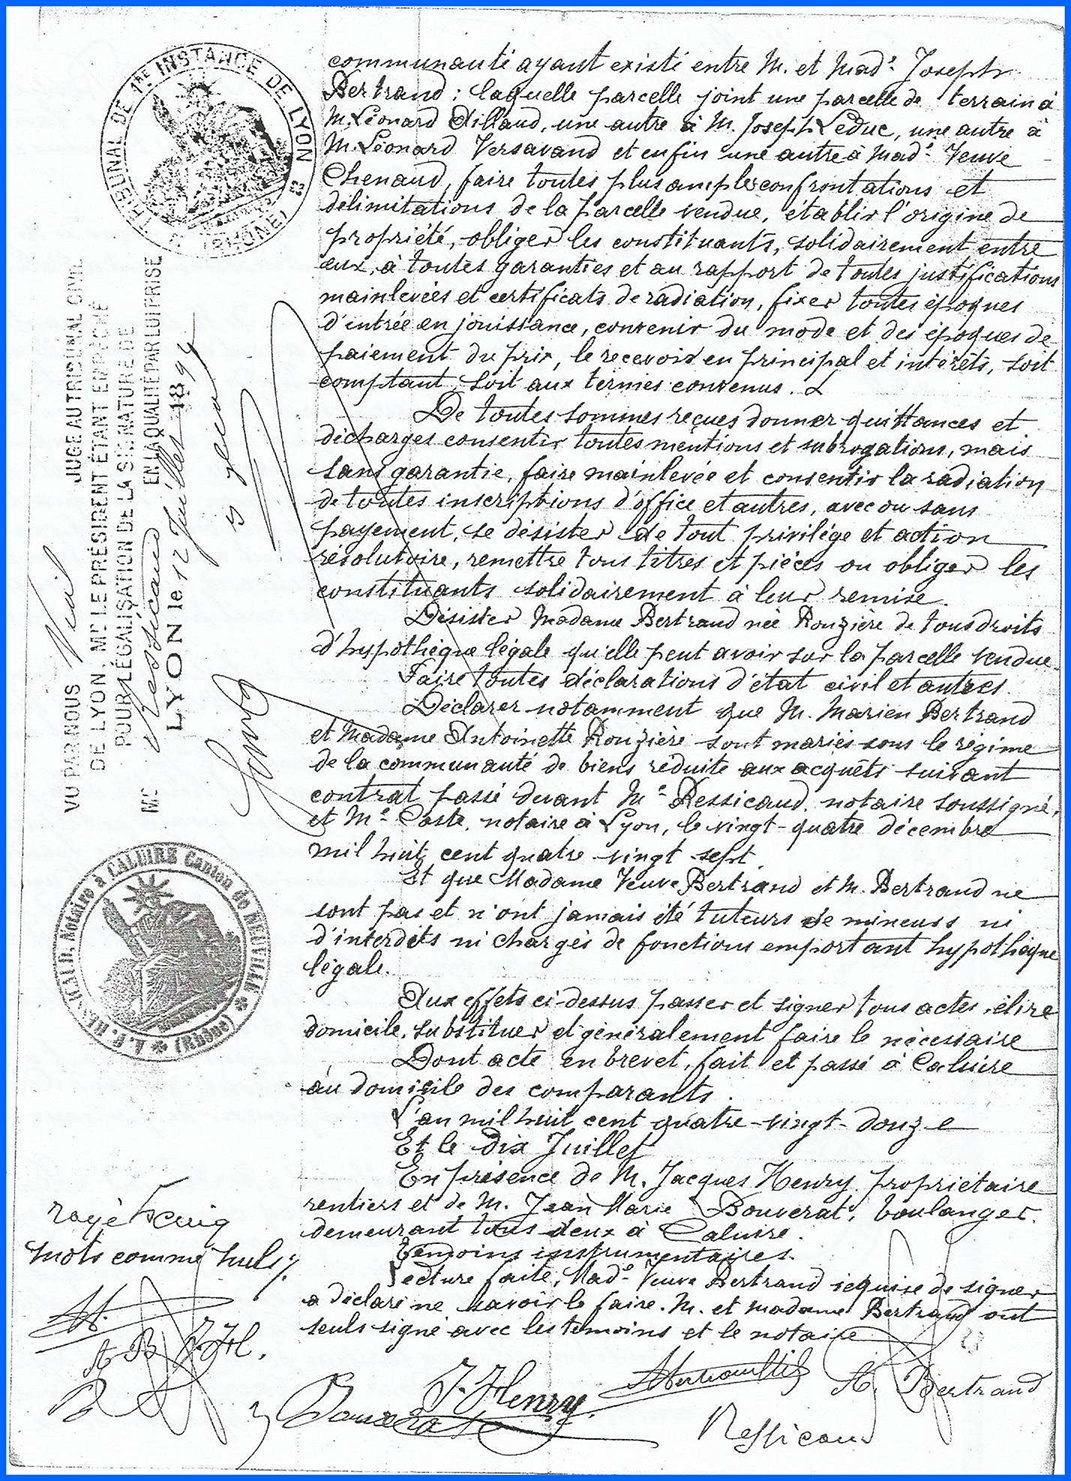 TRIBUNAL DE 1RE INSTANCE DE LYON
(RHÔNE)
communauté ayant existé entre M. et Made. Joseph
Bertrand ; laquelle parcelle joint une parcelle de terrain à
M. Léonard Aillaud, une autre à M. Joseph Leduc, une autre à
M. Léonard Versavand et enfin une autre à Made. Veuve
Chenaud, faire toutes plus amples confrontations et
délimitations de la parcelle vendue, établir l'origine de
propriété, obliger les constituants, solidairement entre
eux, à toutes garanties et au rapport de toutes justifications
mainlevées et certificats de radiation, fixer toutes époques
d'entrée en jouissance, convenir du mode et des époques de
paiement du prix, le recevoir en principal et intérêts, soit
comptant, soit aux termes convenus.
De toutes sommes reçues donner quittances et
décharges consentir toutes mentions et subrogations, mais
sans garantie, faire mainlevée et consentir la radiation
de toutes inscriptions d'office et autres, avec ou sans
payement, se désister de tout privilége et action
résolutoire, remettre tous titres et pièces ou obliger les
constituants solidairement à leur remise.
Désister Madame Bertrand née Rouzière de tous droits
d'hypothèque légale qu'elle peut avoir sur la parcelle vendue.
Faire toutes déclarations d'état civil et autres.
Déclarer notamment que M. Marien Bertrand
et Madame Antoinette Rouzière sont mariés sous le régime
de la communauté de biens réduite aux acquêts suivant
contrat passé devant Me. Ressicaud, notaire soussigné,
et Me. Coste, notaire à Lyon, le vingt-quatre décembre
mil huit cent quatre vingt sept.
Et que Madame Veuve Bertrand et M. Bertrand ne
sont pas et n'ont jamais été tuteurs de mineurs ni
d'interdits ni chargés de fonctions emportant hypothèque
légale.
Aux effets ci-dessus passer et signer tous actes, élire
domicile, substituer et généralement faire le nécessaire
Dont acte en brevet, fait et passé à Caluire
au domicile des comparants.
L'an mil huit cent quatre-vingt-douze
Et le dix Juillet
En présence de M. Jacques Henry, propriétaire
rentiers et de M. Jean Marie Bouverat, boulanger.
demeurant tous deux à Caluire.
Témoins instrumentaires.
Lecture faite, Made. Veuve Bertrand requise de signer
a déclaré ne savoir le faire. M. et madame Bertrand ont
seuls signé avec les témoins et le notaire
VU PAR NOUS Vial JUGE AU TRIBUNAL CIVIL
DE LYON, Mr LE PRÉSIDENT ÉTANT EMPÊCHÉ
POUR LÉGALISATION DE LA SIGNATURE DE
Me Ressicaud EN LA QUALITÉ PAR LUI PRISE
LYON le 12 Juillet 189
Notaire à CALUIRE Canton de NEUVILLE (RHÔNE)
rayé cinq
mots comme nuls
A B J. H.
B
J. Henry.
A. Bertrand
Ressicaud